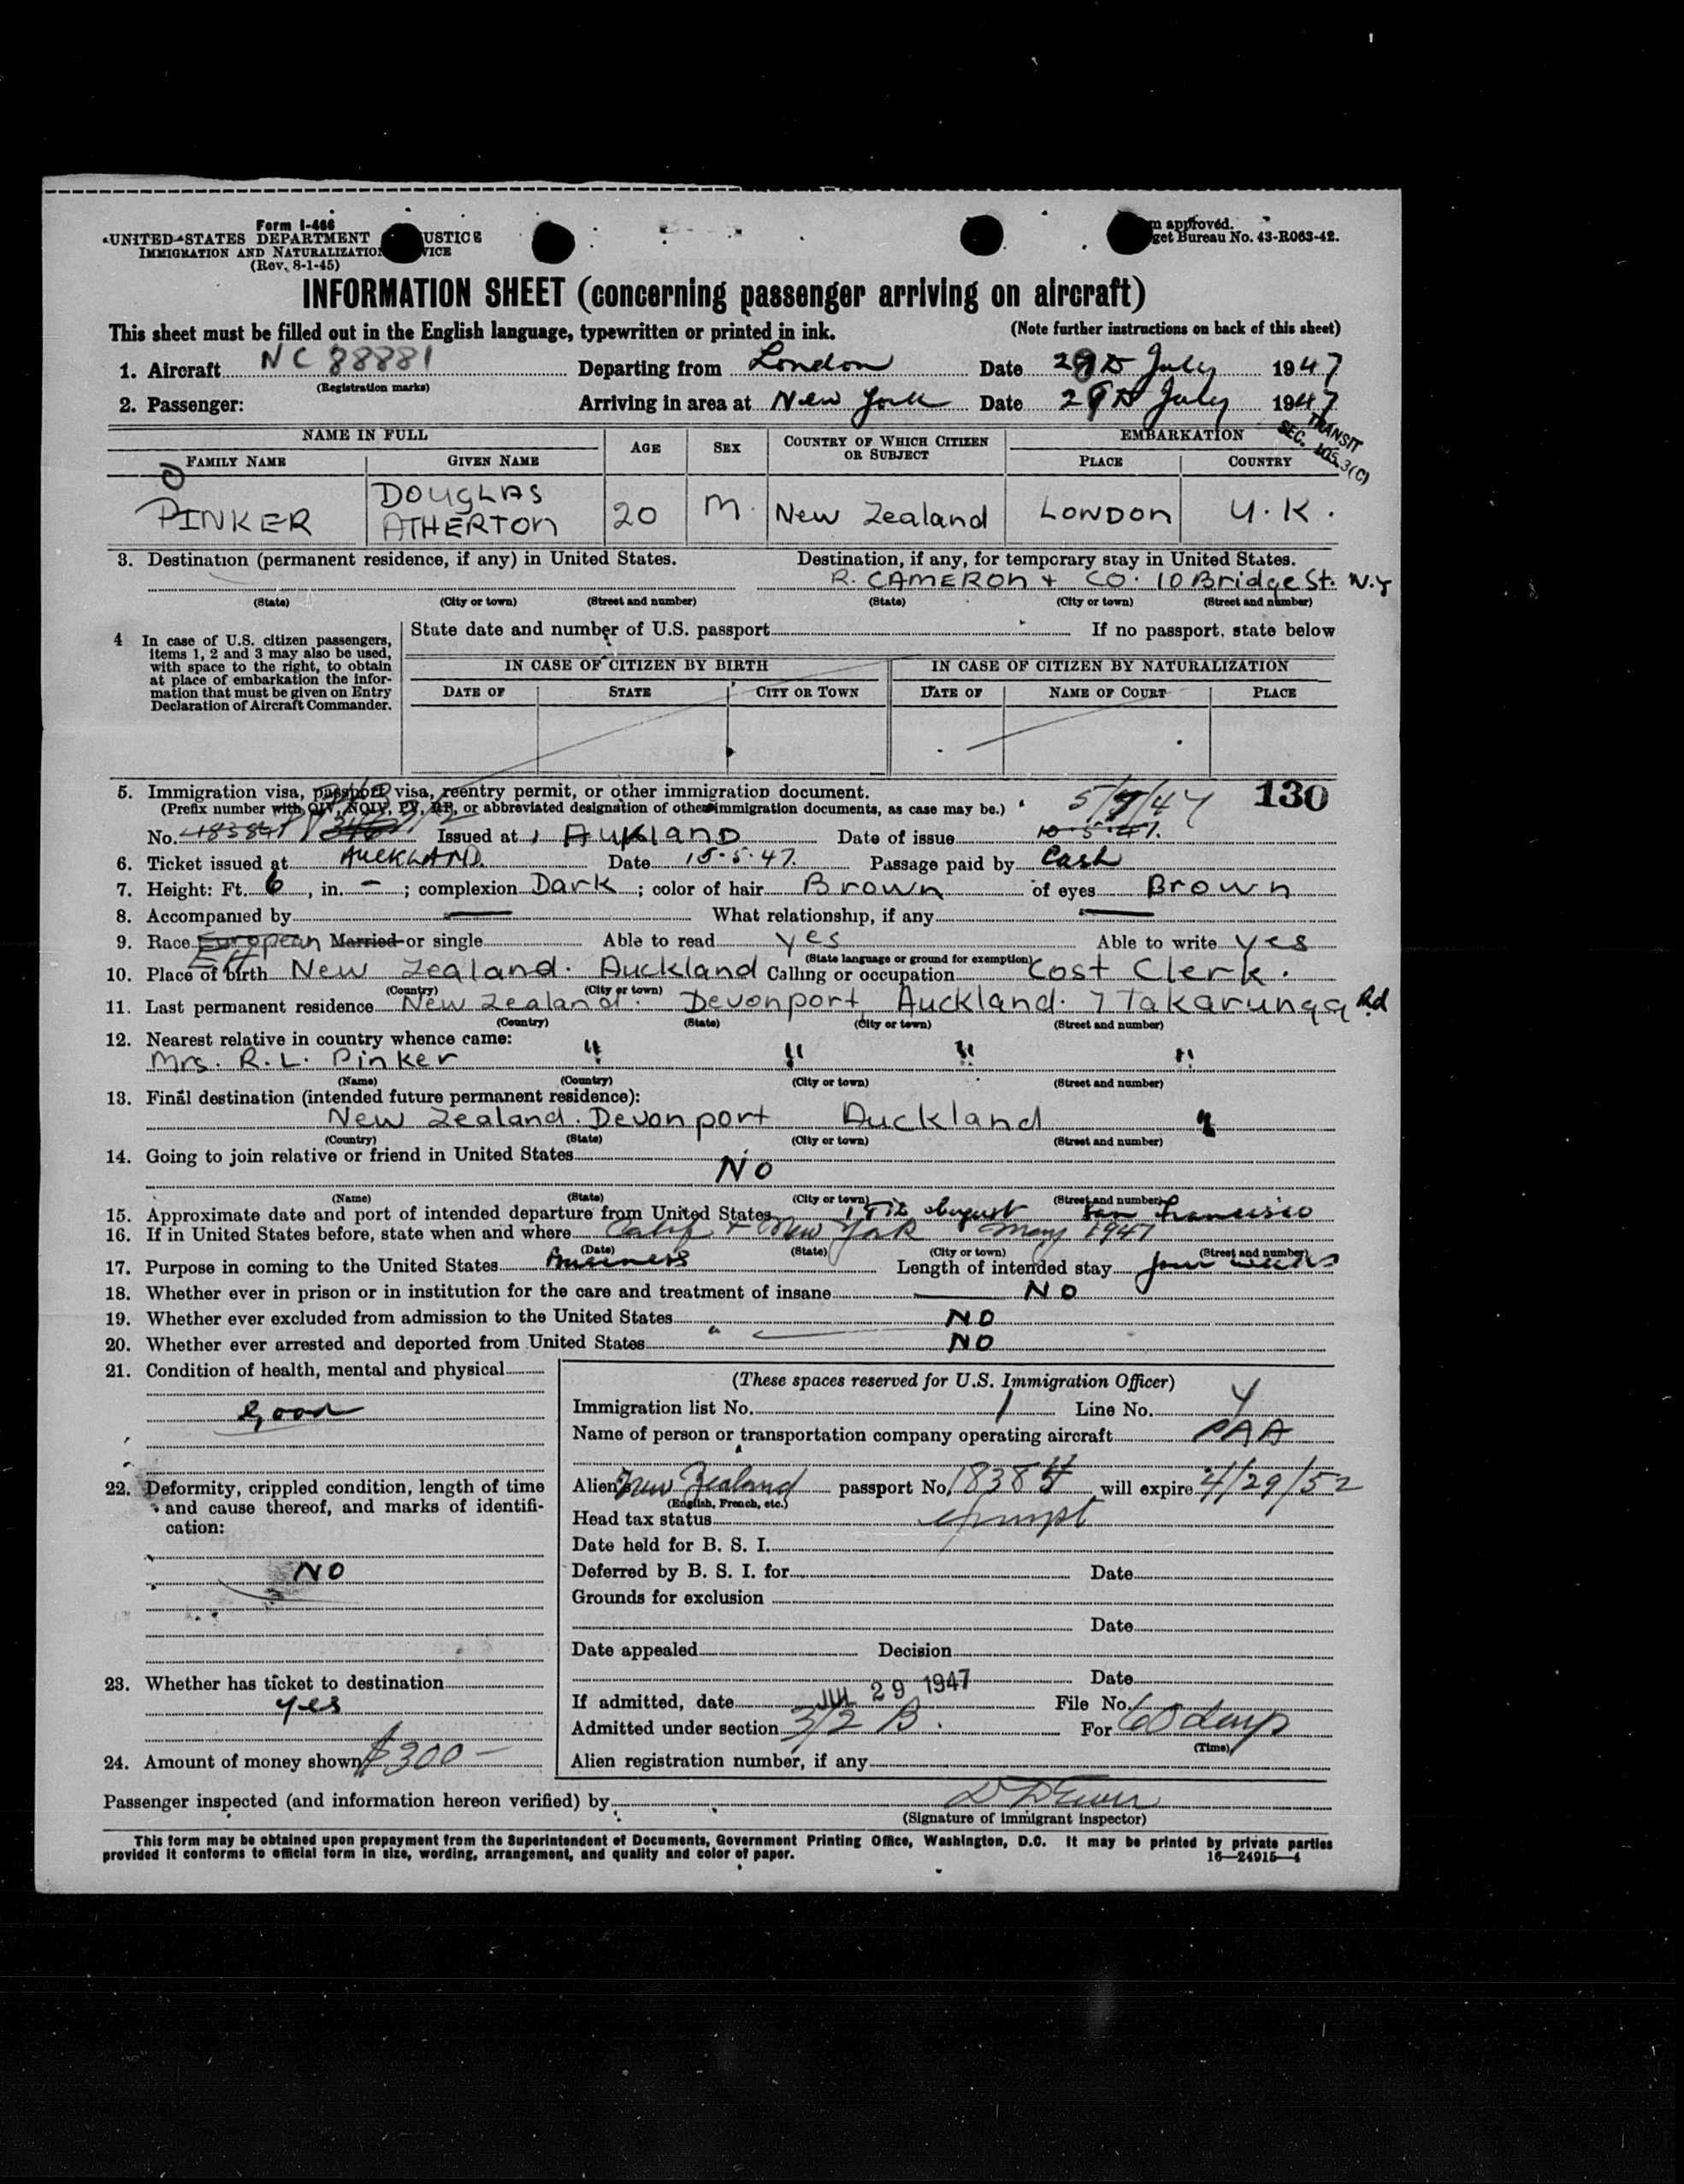 Form I-466
UNITED STATES DEPARTMENT USTICE
IMMIGRATION AND NATURALIZATION VICE
(Rev. 8-1-45)
m approved.
get Bureau No. 43-R063-42.
INFORMATION SHEET (concerning passenger arriving on aircraft)
This sheet must be filled out in the English language, typewritten or printed in ink. (Note further instructions on back of this sheet)
1. Aircraft NC 88881 Departing from London Date July 1947
(Registration marks)
2. Passenger: Arriving in area at New York Date July 1947
TRANSIT
SEC. 105.3(C)
NAME IN FULL AGE SEX COUNTRY OF WHICH CITIZEN OR SUBJECT EMBARKATION
FAMILY NAME GIVEN NAME PLACE COUNTRY
PINKER DOUGLAS ATHERTON 20 M. New Zealand LONDON U.K.
3. Destination (permanent residence, if any) in United States. Destination, if any, for temporary stay in United States.
R. CAMERON + CO. 10 Bridge St. N.Y
(State) (City or town) (Street and number) (State) (City or town) (Street and number)
4 In case of U.S. citizen passengers, items 1, 2 and 3 may also be used, with space to the right, to obtain at place of embarkation the information that must be given on Entry Declaration of Aircraft Commander.
State date and number of U.S. passport If no passport, state below
IN CASE OF CITIZEN BY BIRTH IN CASE OF CITIZEN BY NATURALIZATION
DATE OF STATE CITY OR TOWN DATE OF NAME OF COURT PLACE
5. Immigration visa, passport visa, reentry permit, or other immigration document. 130
(Prefix number with QIV, NQIV, PV, RP, or abbreviated designation of other immigration documents, as case may be.)
No. Issued at AUKLAND Date of issue 10-5-47.
6. Ticket issued at AUCKLAND. Date 15.5.47. Passage paid by Cash
7. Height: Ft. 6, in. - ; complexion Dark ; color of hair Brown of eyes Brown
8. Accompanied by — What relationship, if any —
9. Race European Married or single Able to read yes Able to write yes
(State language or ground for exemption)
10. Place of birth New Zealand. Auckland Calling or occupation Cost Clerk.
(Country) (City or town)
11. Last permanent residence New Zealand. Devonport Auckland. 7 Takarunga Rd
(Country) (State) (City or town) (Street and number)
12. Nearest relative in country whence came:
Mrs. R. L. Pinker " " " "
(Name) (Country) (City or town) (Street and number)
13. Final destination (intended future permanent residence):
New Zealand. Devonport Auckland
(Country) (State) (City or town) (Street and number)
14. Going to join relative or friend in United States
NO
(Name) (State) (City or town) (Street and number)
15. Approximate date and port of intended departure from United States August San Francisco
16. If in United States before, state when and where Calif + New York May 1947
(Date) (State) (City or town) (Street and number)
17. Purpose in coming to the United States Business Length of intended stay four weeks
18. Whether ever in prison or in institution for the care and treatment of insane NO
19. Whether ever excluded from admission to the United States NO
20. Whether ever arrested and deported from United States NO
21. Condition of health, mental and physical
Good
22. Deformity, crippled condition, length of time and cause thereof, and marks of identification:
NO
23. Whether has ticket to destination
yes
24. Amount of money shown $300 -
(These spaces reserved for U.S. Immigration Officer)
Immigration list No. 1 Line No. 4
Name of person or transportation company operating aircraft PAA
Alien's New Zealand passport No. 18384 will expire 4/29/52
(English, French, etc.)
Head tax status exempt
Date held for B. S. I.
Deferred by B. S. I. for Date
Grounds for exclusion
Date
Date appealed Decision
Date
If admitted, date JUL 29 1947 File No.
Admitted under section 3/2 B. For 60 days
(Time)
Alien registration number, if any
Passenger inspected (and information hereon verified) by
(Signature of immigrant inspector)
This form may be obtained upon prepayment from the Superintendent of Documents, Government Printing Office, Washington, D.C. It may be printed by private parties
provided it conforms to official form in size, wording, arrangement, and quality and color of paper. 16—24915-4